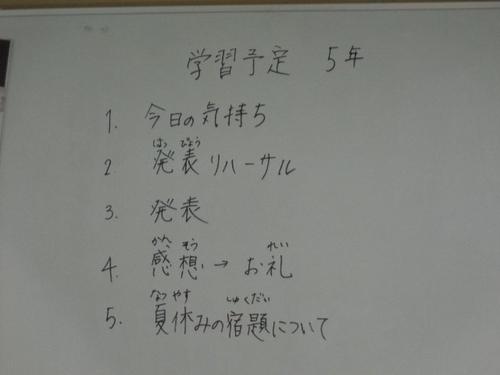 学習予定 5年
1. 今日の気持ち
はっ ぴょう
2 発表リハーサル
3. 発表
かん そう れい
4. 感想→お礼
なつ やす しゅくだい
5. 夏休みの宿題について